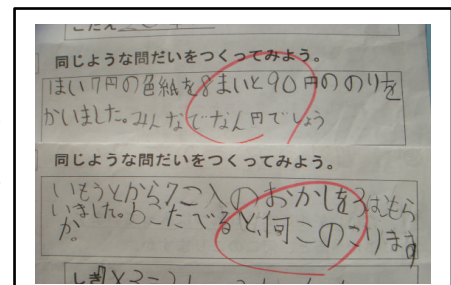 同じような問だいをつくってみよう。
1まい7円の色紙を8まいと90円ののりを
かいました。みんなでなん円でしょう
同じような問だいをつくってみよう。
いもうとから7こ入のおかしを3はもら
いました。6こたべると、何このこります
か。